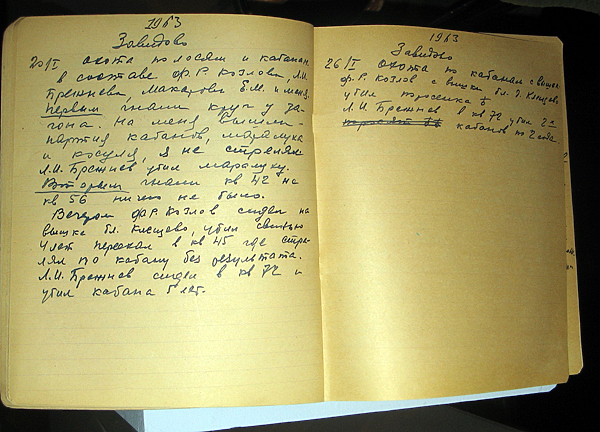 1963
Завидово
20/I охота по лосям и кабанам
в составе Ф.Р. Козлова, Л.И.
Брежнева, Макарова Б.М. и меня.
Первым гнали круг у за-
гона. На меня вышли
партия кабанов маралука
и косуля, я не стрелял
Л.И. Брежнев убил маралуху.
Вторым гнали кв 42 на
кв 56 ничего не было.
Вечером Ф.Р. Козлов сидел на
вышке бл. Клещево, убил свинью
4 лет переехал в кв 45 где стре-
лял по кабану без результата.
Л.И. Брежнев сидел в кв 72 и
убил кабана 5 лет.
1963
Завидово
26/I охота по кабанам с вышек
Ф.Р. Козлов с вышки бл. д. Клещево
убил поросенка
Л.И. Брежнев в кв 72 убил 2х
кабанов по 2 года